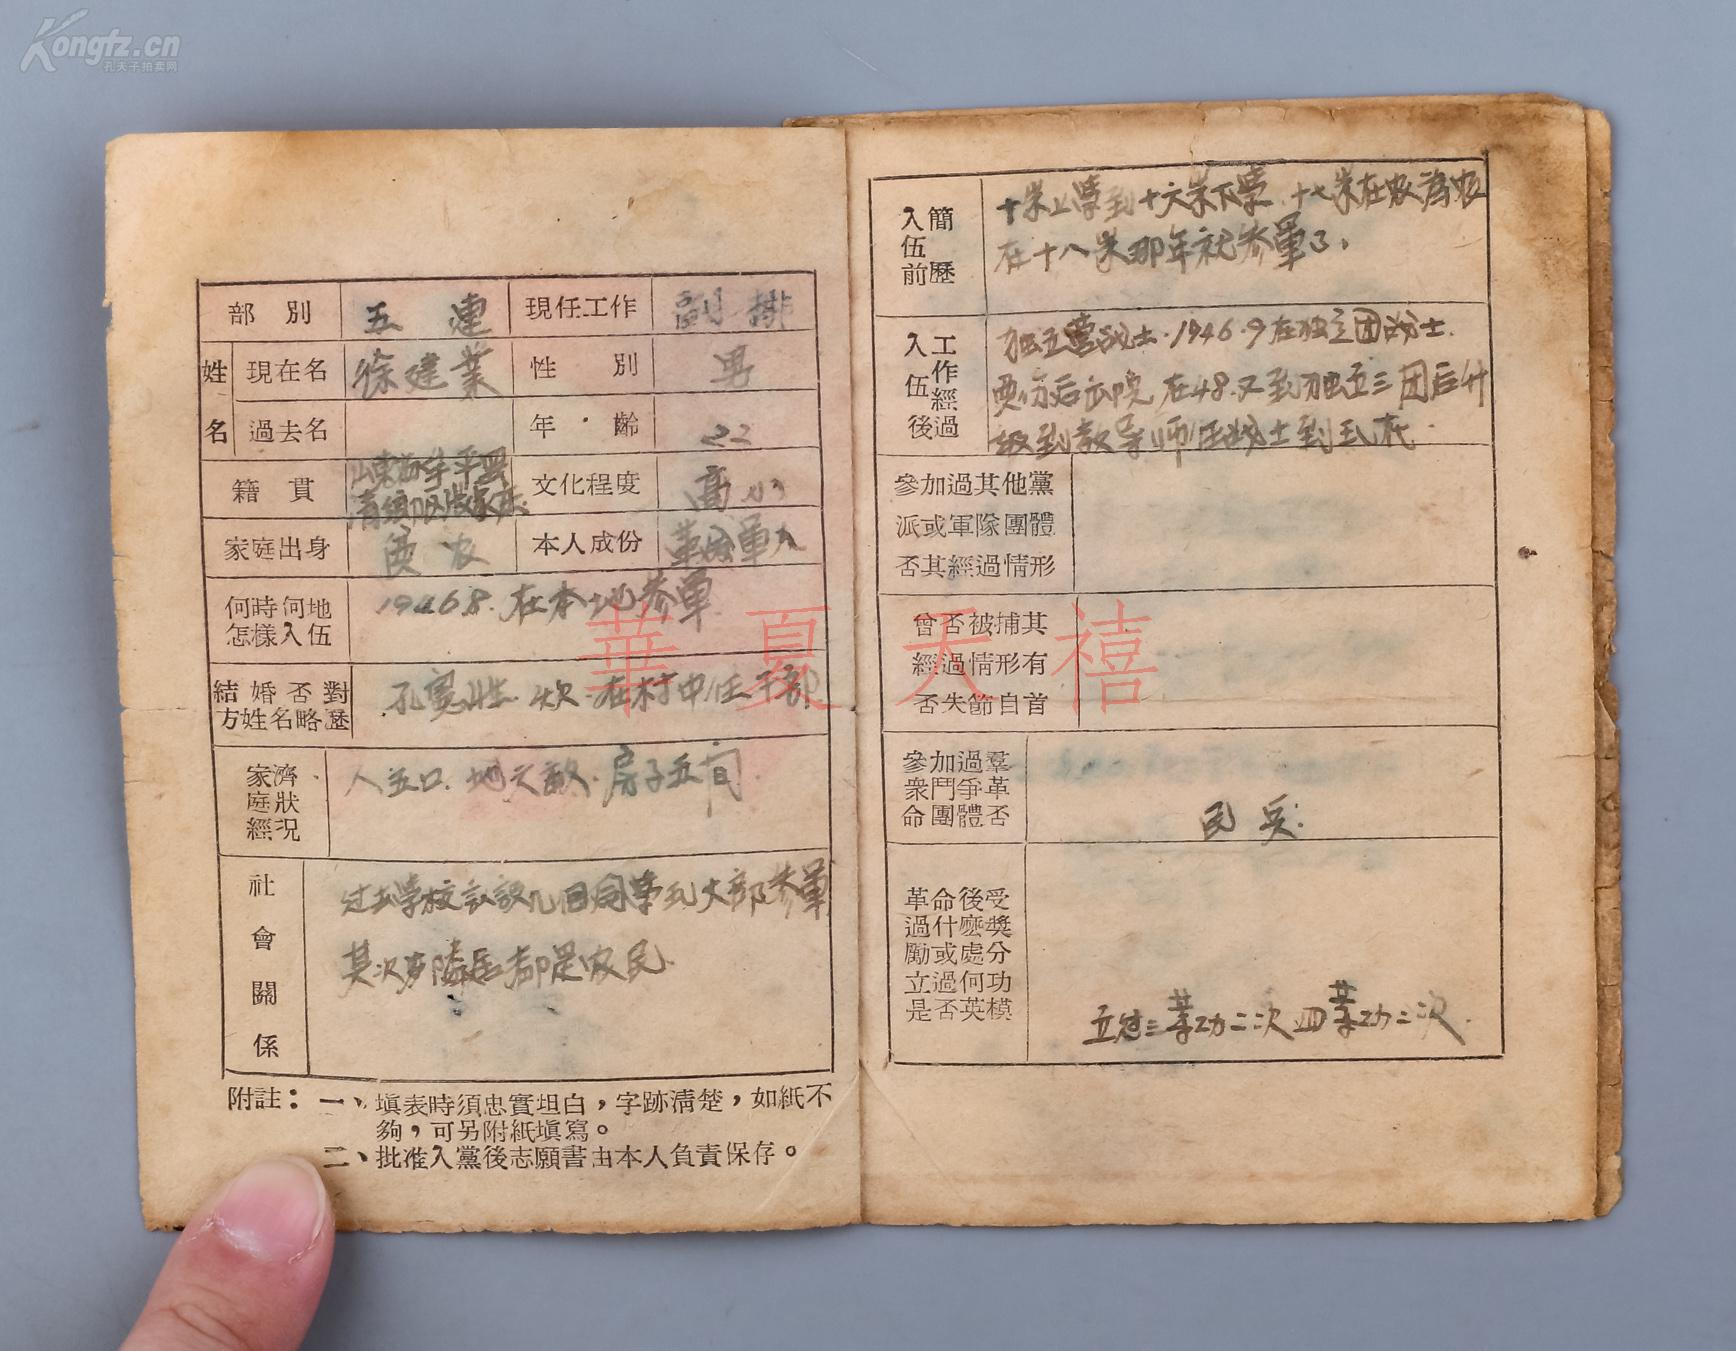 Kongfz.cn
孔夫子拍卖网
部別 五連 現任工作 副排
姓名 現在名 徐建業 性別 男
過去名 年齡 22
籍貫 山東 文化程度 高小
家庭出身 农 本人成份 革命軍人
何時何地怎樣入伍 1946.8.在本地参軍
結婚否對方姓名略歷 孔憲 在村中任干部
家庭經濟狀況 人五口.地六畝.房子五间
社會關係 过去学校 几個同学 大部参軍
其次 隣居都是农民.
附註：一、填表時須忠實坦白，字跡淸楚，如紙不
夠，可另附紙填寫。
二、批准入黨後志願書由本人負責保存。
入伍前簡歷 十岁上学到十六岁下学.十七岁在农為农
在十八岁那年就参軍了.
入伍後工作經過 独立营战士.1946.9在独立团战士.
负伤后 院 在48.又到独立三团后升
级到教导师任战士到 在.
參加過其他黨
派或軍隊團體
否其經過情形
曾否被捕其
經過情形有
否失節自首
參加過羣
衆鬥爭革
命團體否 民兵.
革命後受
過什麽奬
勵或處分
立過何功
是否英模 立过三等功二次四等功二次.
華夏天禧